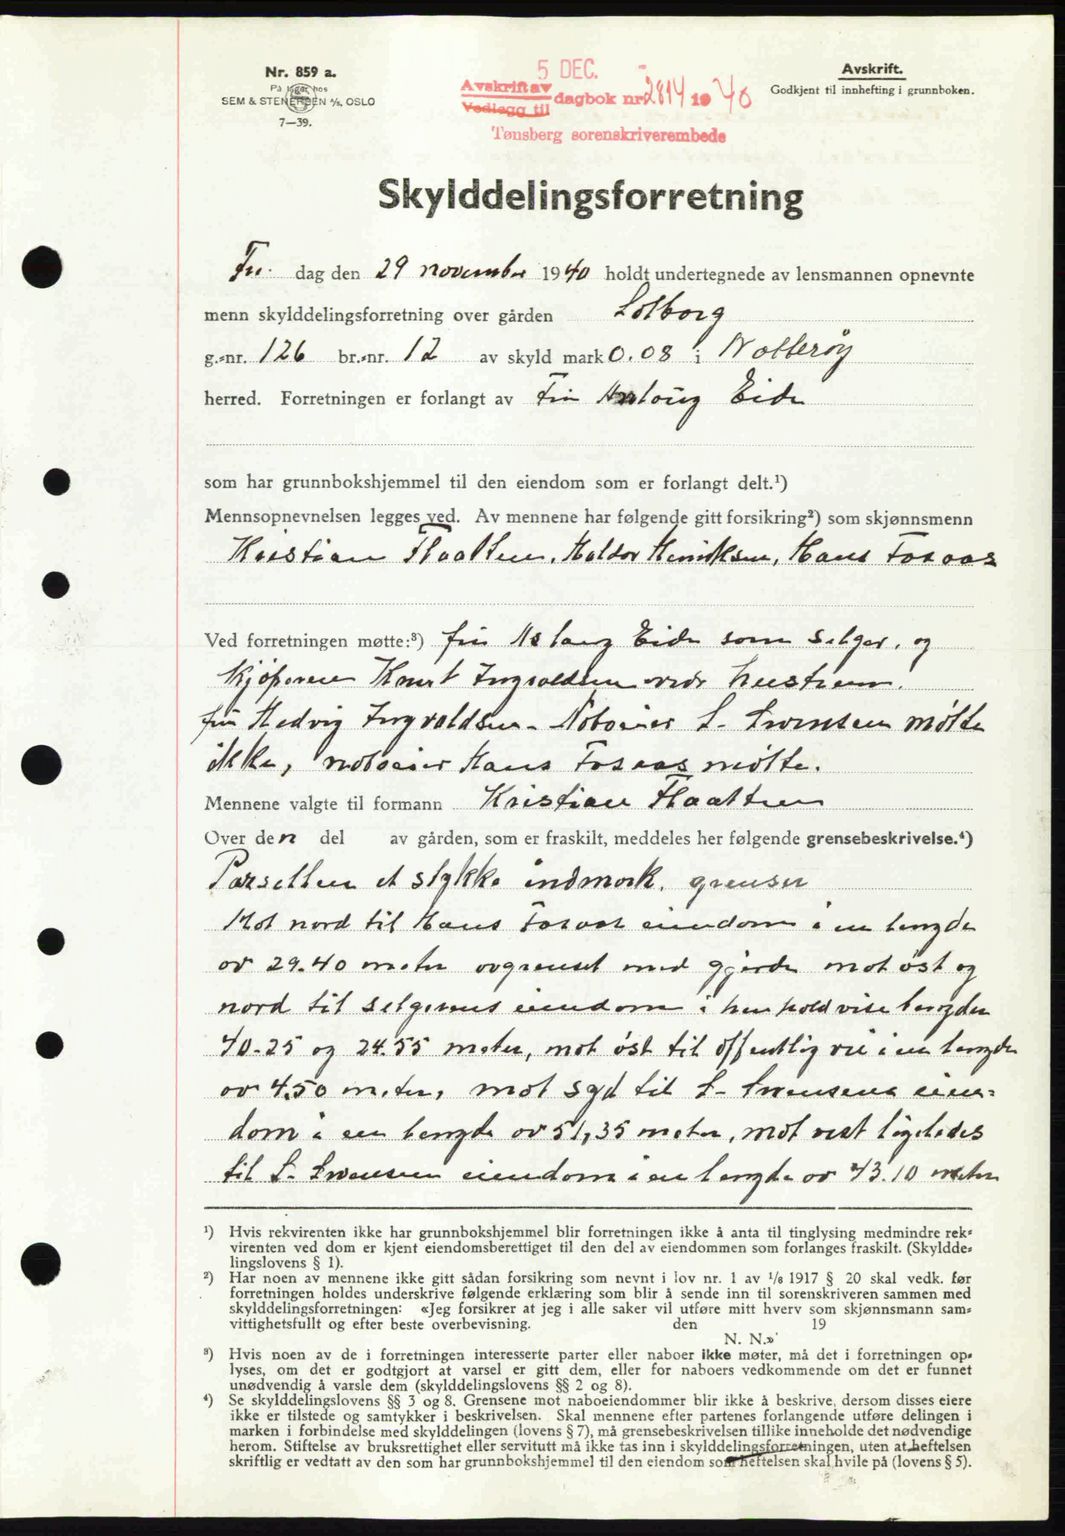 Nr. 859 a.
På lager hos
SEM & STENERSEN A/S, OSLO
7—39.
5 DEC.
Avskrift av
Vedlegg til
dagbok nr 2814 1940
Tønsberg sorenskriverembede
Avskrift.
Godkjent til innhefting i grunnboken.
Skylddelingsforretning
Fre. dag den 29 november 1940 holdt undertegnede av lensmannen opnevnte
menn skylddelingsforretning over gården Solborg
g.=nr. 126 br.=nr. 12 av skyld mark 0.08 i Nøtterøy
herred. Forretningen er forlangt av Fru Aslaug Eide
som har grunnbokshjemmel til den eiendom som er forlangt delt.¹)
Mennsopnevnelsen legges ved. Av mennene har følgende gitt forsikring²) som skjønnsmenn
Kristian Flaatten, Haldor Henriksen, Hans Fosaas
Ved forretningen møtte:³) fru Aslaug Eide som selger, og
kjøperen Knut Ingvaldsen ved hustruen.
fru Hedvig Ingvaldsen. Naboeier S. Svensen møtte
ikke, naboeier Hans Fosaas møtte.
Mennene valgte til formann Kristian Flaatten
Over den del av gården, som er fraskilt, meddeles her følgende grensebeskrivelse.⁴)
Parsellen et stykke indmark, grenser
Mot nord til Hans Fosaas eiendom i en lengde
av 29.40 meter avgrenset med gjerde mot øst og
nord til selgerens eiendom i henholdvise lengder
40.25 og 24.55 meter, mot øst til offentlig vei i en lengde
av 4.50 meter, mot syd til S. Svensens eien=
dom i en lengde av 51,35 meter, mot vest ligeledes
til S. Svensen eiendom i en lengde av 43.10 meter
¹) Hvis rekvirenten ikke har grunnbokshjemmel blir forretningen ikke å anta til tinglysing medmindre rek=
virenten ved dom er kjent eiendomsberettiget til den del av eiendommen som forlanges fraskilt. (Skyldde=
lingslovens § 1).
²) Har noen av mennene ikke gitt sådan forsikring som nevnt i lov nr. 1 av 1/6 1917 § 20 skal vedk. før
forretningen holdes underskrive følgende erklæring som blir å sende inn til sorenskriveren sammen med
skylddelingsforretningen: «Jeg forsikrer at jeg i alle saker vil utføre mitt hverv som skjønnsmann sam=
vittighetsfullt og efter beste overbevisning. den 19
N. N.»
³) Hvis noen av de i forretningen interesserte parter eller naboer ikke møter, må det i forretningen op=
lyses, om det er godtgjort at varsel er gitt dem, eller for naboers vedkommende om det er funnet
unødvendig å varsle dem (skylddelingslovens §§ 2 og 8).
⁴) Se skylddelingslovens §§ 3 og 8. Grensene mot naboeiendommer blir ikke å beskrive, dersom disses eiere
ikke er tilstede og samtykker i beskrivelsen. Skal mennene efter partenes forlangende utføre delingen i
marken i forbindelse med skylddelingen (lovens § 7), må grensebeskrivelsen tillike inneholde det nødvendige
herom. Stiftelse av bruksrettighet eller servitutt må ikke tas inn i skylddelingsforretningen, uten at heftelsen
skriftlig er vedtatt av den som har grunnbokshjemmel til den eiendom som heftelsen skal hvile på (lovens § 5).